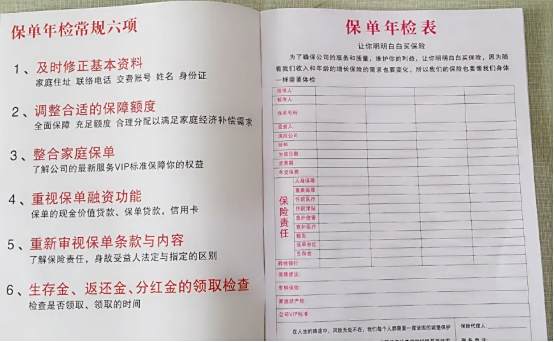 保单年检常规六项
1、及时修正基本资料
家庭住址 联络电话 交费账号 姓名 身份证
2、调整合适的保障额度
全面保障 充足额度 合理分配以满足家庭经济补偿需求
3、整合家庭保单
了解公司的最新服务VIP标准保障你的权益
4、重视保单融资功能
保单的现金价值贷款、保单贷款，信用卡
5、重新审视保单条款与内容
了解保险责任，身故受益人法定与指定的区别
6、生存金、返还金、分红金的领取检查
检查是否领取、领取的时间
保单年检表
让你明明白白买保险
为了确保公司的服务和质量，维护你的利益，让你明明白白买保险，因为随
着我们收入和年龄的增长保险的需求也要变化，所以我们的保险也要像我们身体
一样需要体检
投保人
被保人
保单号码
受益人
保险责任
人身保障
重疾保障
住院医疗
意外伤害
意外医疗
生存金
公司VIP标准
保险代理人